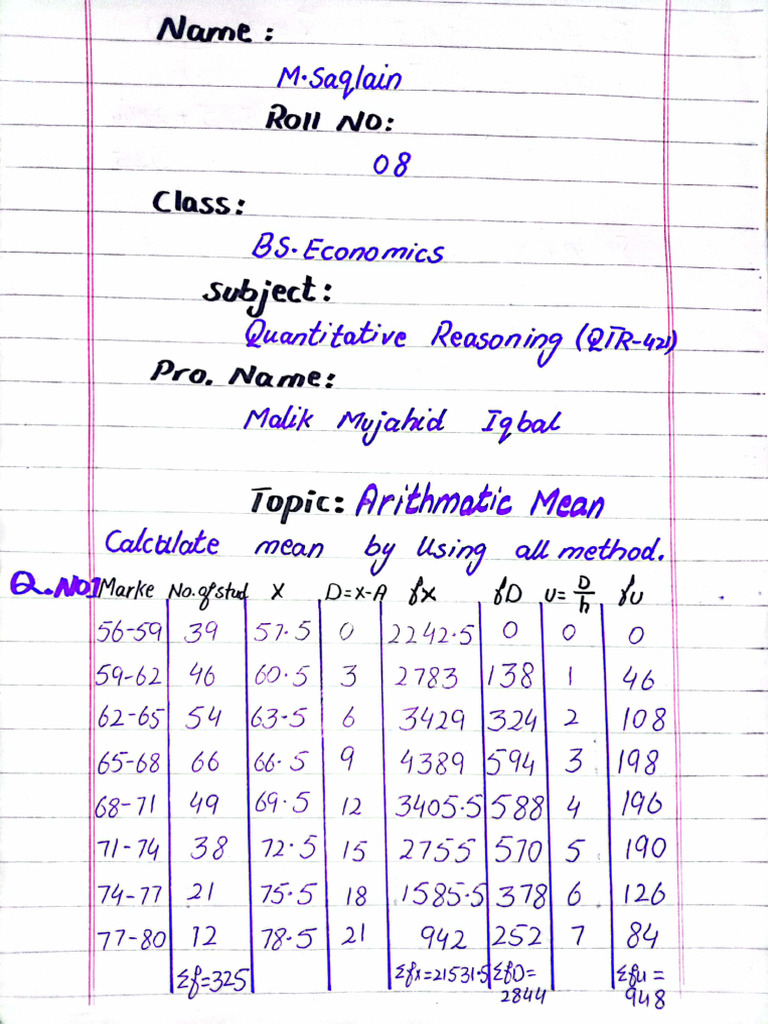 Name:
M.Saqlain
Roll No:
08
Class:
BS.Economics
Subject:
Quantitative Reasoning (QTR-421)
Pro. Name:
Malik Mujahid Iqbal
Topic: Arithmatic Mean
Calculate mean by Using all method.
Q.No1 Marke No.of stud X D=x-A fx fD U=D/h fu
56-59 39 57.5 0 2242.5 0 0 0
59-62 46 60.5 3 2783 138 1 46
62-65 54 63.5 6 3429 324 2 108
65-68 66 66.5 9 4389 594 3 198
68-71 49 69.5 12 3405.5 588 4 196
71-74 38 72.5 15 2755 570 5 190
74-77 21 75.5 18 1585.5 378 6 126
77-80 12 78.5 21 942 252 7 84
Σf=325 Σfx=21531.5 ΣfD=2844 Σfu=948